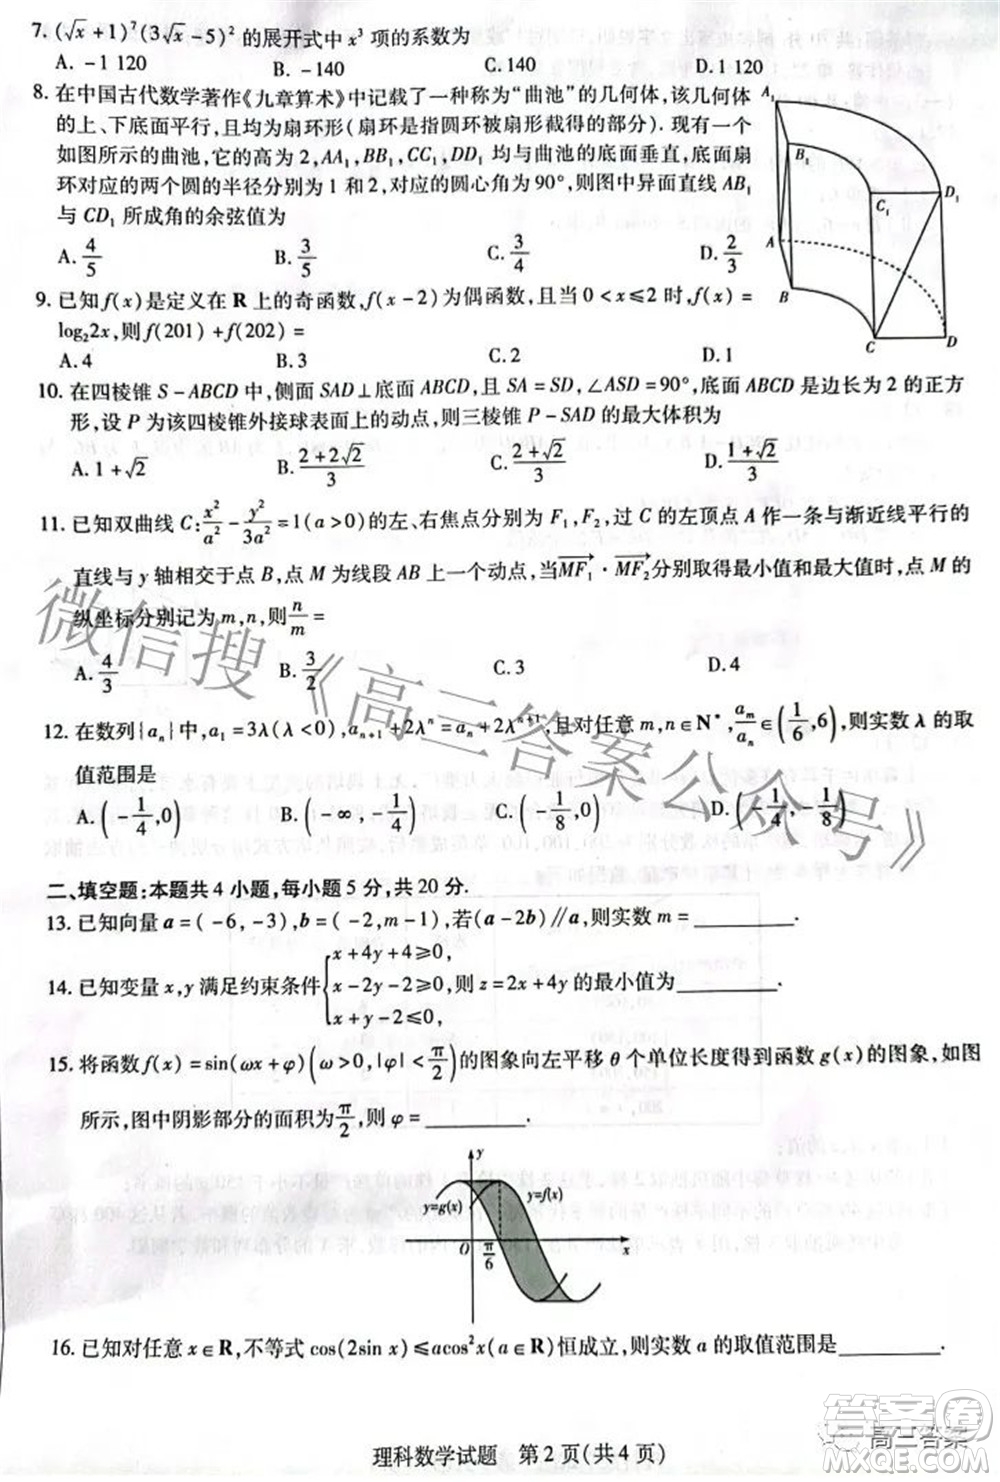 7. (√x+1)²(3√x-5)² 的展开式中 x³ 项的系数为
A. -1 120 B. -140 C. 140 D. 1 120
8. 在中国古代数学著作《九章算术》中记载了一种称为“曲池”的几何体,该几何体的
上、下底面平行,且均为扇环形(扇环是指圆环被扇形截得的部分).现有一个
如图所示的曲池,它的高为 2, AA₁, BB₁, CC₁, DD₁ 均与曲池的底面垂直,底面扇
环对应的两个圆的半径分别为 1 和 2,对应的圆心角为 90°,则图中异面直线 AB₁
与 CD₁ 所成角的余弦值为
A. 4/5 B. 3/5 C. 3/4 D. 2/3
A₁ B₁ C₁ D₁ A B C D
9. 已知 f(x) 是定义在 R 上的奇函数, f(x-2) 为偶函数,且当 0<x≤2 时, f(x)=
log₂2x,则 f(201)+f(202)=
A. 4 B. 3 C. 2 D. 1
10. 在四棱锥 S-ABCD 中,侧面 SAD⊥底面 ABCD,且 SA=SD, ∠ASD=90°,底面 ABCD 是边长为 2 的正方
形,设 P 为该四棱锥外接球表面上的动点,则三棱锥 P-SAD 的最大体积为
A. 1+√2 B. (2+2√2)/3 C. (2+√2)/3 D. (1+√2)/3
11. 已知双曲线 C: x²/a² - y²/3a² = 1(a>0) 的左、右焦点分别为 F₁, F₂,过 C 的左顶点 A 作一条与渐近线平行的
直线与 y 轴相交于点 B,点 M 为线段 AB 上一个动点,当 MF₁·MF₂ 分别取得最小值和最大值时,点 M 的
纵坐标分别记为 m, n,则 n/m =
A. 4/3 B. 3/2 C. 3 D. 4
12. 在数列{aₙ}中, a₁=3λ(λ<0), aₙ₊₁+2λⁿ=aₙ+2λⁿ⁺¹,且对任意 m,n∈N*, aₘ/aₙ∈(1/6,6),则实数 λ 的取
值范围是
A. (-1/4,0) B. (-∞, -1/4) C. (-1/8,0) D. (-1/4, -1/8)
二、填空题:本题共 4 小题,每小题 5 分,共 20 分.
13. 已知向量 a=(-6,-3), b=(-2,m-1),若(a-2b)∥a,则实数 m=________.
14. 已知变量 x,y 满足约束条件 { x+4y+4≥0, x-2y-2≤0, x+y-2≤0, 则 z=2x+4y 的最小值为________.
15. 将函数 f(x)=sin(ωx+φ)(ω>0, |φ|<π/2) 的图象向左平移 θ 个单位长度得到函数 g(x) 的图象,如图
所示,图中阴影部分的面积为 π/2,则 φ=________.
y y=g(x) y=f(x) O π/6 x
16. 已知对任意 x∈R,不等式 cos(2sin x)≤acos²x(a∈R)恒成立,则实数 a 的取值范围是________.
理科数学试题 第 2 页(共 4 页)
微信搜《高三答案公众号》
答案卷
高三答案
MXQE.COM